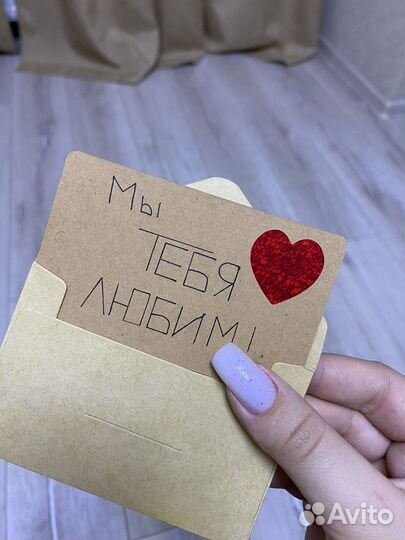 Мы
ТЕБЯ
ЛЮБИМ!
Avito